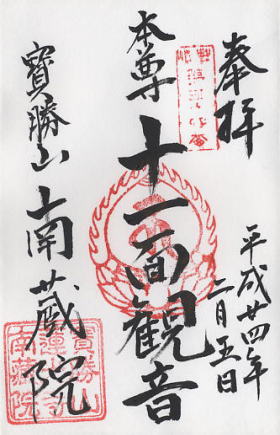 奉拝
平成廿四年
二月五日
本尊
十一面観音
寳勝山南蔵院
寳勝山
蓮光寺
南蔵院